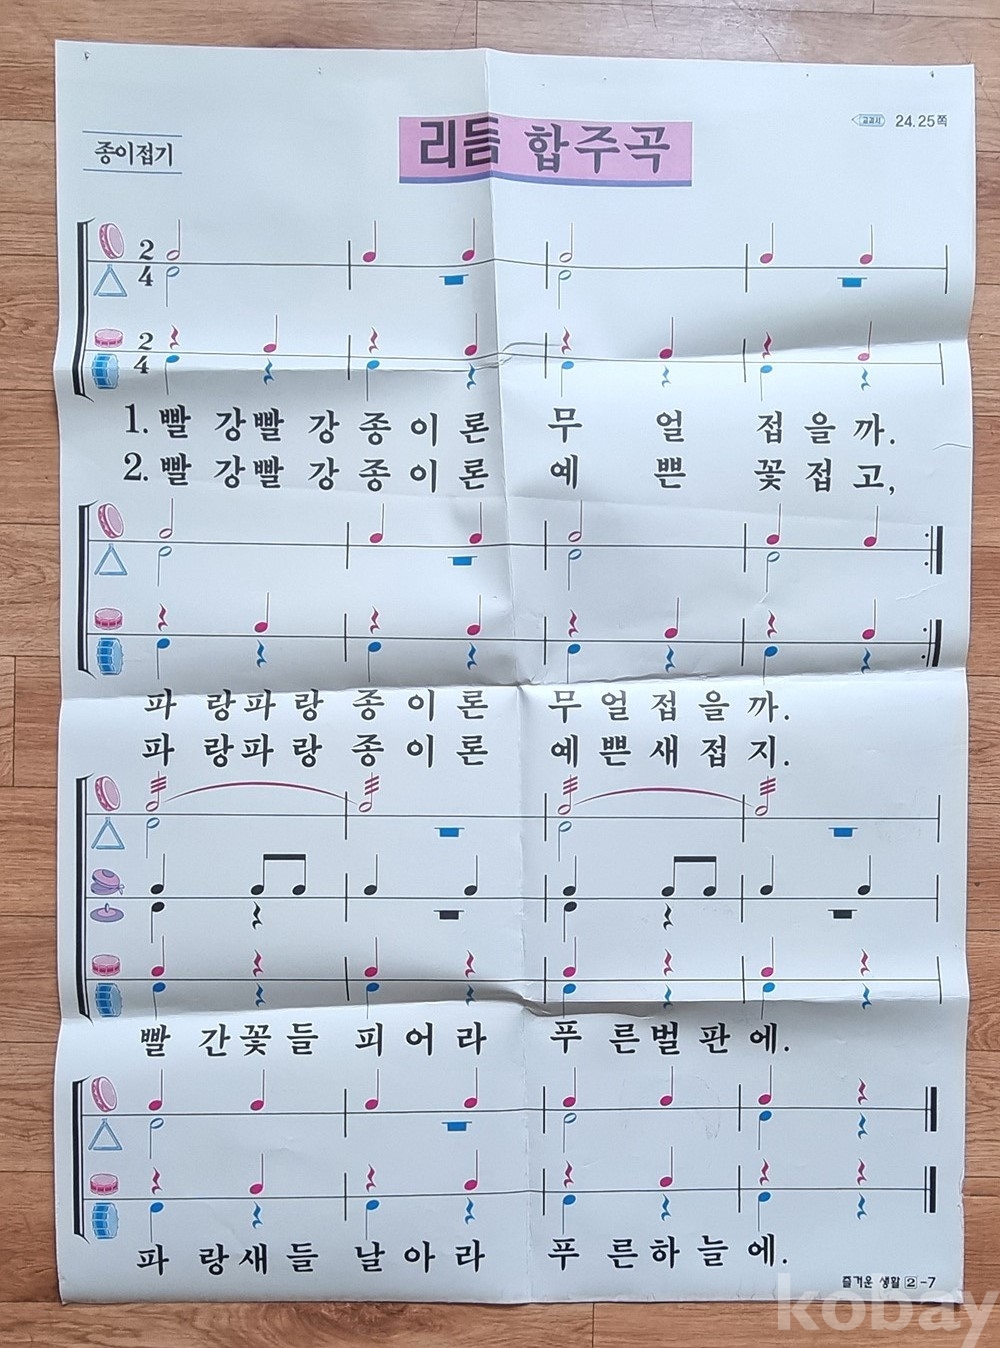 리듬 합주곡
교과서 24.25쪽
종이접기
2
4
2
4
1. 빨 강빨 강 종 이 론 무 얼 접 을 까.
2. 빨 강빨 강 종 이 론 예 쁜 꽃 접 고,
파 랑파 랑 종 이 론 무 얼 접 을 까.
파 랑파 랑 종 이 론 예 쁜 새 접 지.
빨 간꽃 들 피 어 라 푸 른벌 판 에.
파 랑새 들 날 아 라 푸 른하 늘 에.
즐거운 생활 2-7
kobay